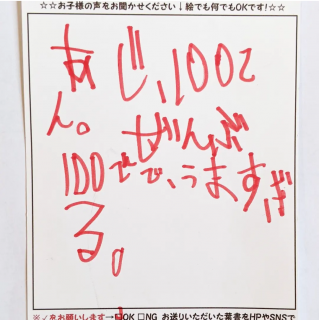 ☆☆お子様の声をお聞かせください↓絵でも何でもOKです!☆☆
あじ、100て
ん。ぜんぶ
100でで、うますぎ
る。
※✓をお願いします→☑OK □NG お送りいただいた葉書をHPやSNSで